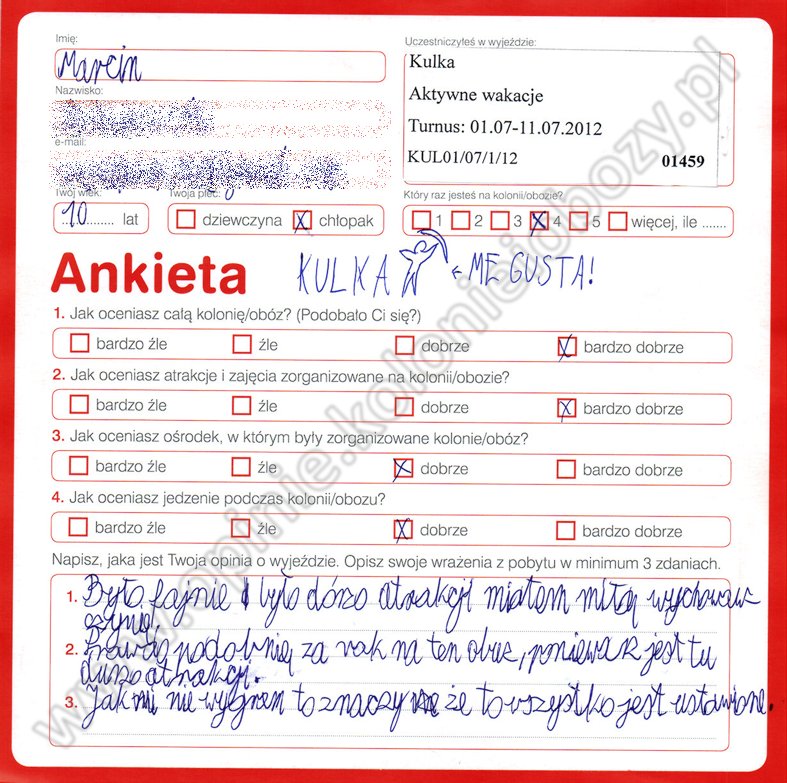 Imię:
Marcin
Uczestniczyłeś w wyjeździe:
Kulka
Aktywne wakacje
Turnus: 01.07-11.07.2012
KUL01/07/1/12 01459
Nazwisko:
e-mail:
Twój wiek:
10 lat
Twoja płeć:
dziewczyna X chłopak
Który raz jesteś na kolonii/obozie?
1 2 3 X 4 5 więcej, ile .......
Ankieta KULKA ← ME GUSTA!
1. Jak oceniasz całą kolonię/obóz? (Podobało Ci się?)
bardzo źle źle dobrze X bardzo dobrze
2. Jak oceniasz atrakcje i zajęcia zorganizowane na kolonii/obozie?
bardzo źle źle dobrze X bardzo dobrze
3. Jak oceniasz ośrodek, w którym były zorganizowane kolonie/obóz?
bardzo źle źle X dobrze bardzo dobrze
4. Jak oceniasz jedzenie podczas kolonii/obozu?
bardzo źle źle X dobrze bardzo dobrze
Napisz, jaka jest Twoja opinia o wyjeździe. Opisz swoje wrażenia z pobytu w minimum 3 zdaniach.
1. Było fajnie i było dórzo atrakcji miałem miłą wychowaw
czynię.
2. podobnię za rok na ten obus, poniewarz jest tu
durzo atrakcji.
3. Jak mi nie wygram to znaczy że to wszystko jest ustawione.
www.opinie.kolonieiobozy.pl